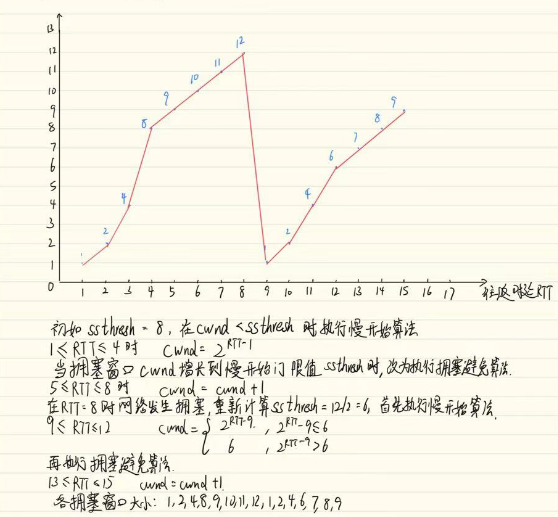 13
12
11
10
9
8
7
6
5
4
3
2
1
0
1 2 4 8 9 10 11 12 1 2 4 6 7 8 9
1 2 3 4 5 6 7 8 9 10 11 12 13 14 15 16 17 往返时延RTT
初始 ssthresh = 8, 在 cwnd < ssthresh 时执行慢开始算法.
1≤RTT≤4 时 cwnd = 2^RTT-1
当拥塞窗口 cwnd 增长到慢开始门限值 ssthresh 时, 改为执行拥塞避免算法.
5≤RTT≤8 时 cwnd = cwnd+1
在RTT=8时网络发生拥塞, 重新计算ssthresh=12/2=6, 首先执行慢开始算法.
9≤RTT≤12 cwnd = { 2^RTT-9, 2^RTT-9≤6
6, 2^RTT-9>6
再执行拥塞避免算法.
13≤RTT≤15 cwnd=cwnd+1
各拥塞窗口大小: 1,2,4,8,9,10,11,12,1,2,4,6,7,8,9